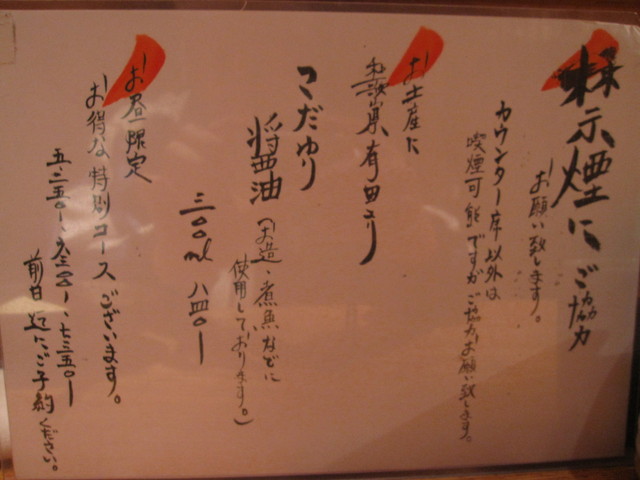 禁煙にご協力
お願い致します。
カウンター席以外は
喫煙可能ですがご協力お願い致します。
お土産に
和歌山県有田より
こだわり
醤油
(お造・煮魚などに
使用しております。)
三〇〇ml 八四〇-
お昼限定
お得な特別コースございます。
五二五〇-、六三〇〇-、七三五〇-
前日迄にご予約ください。